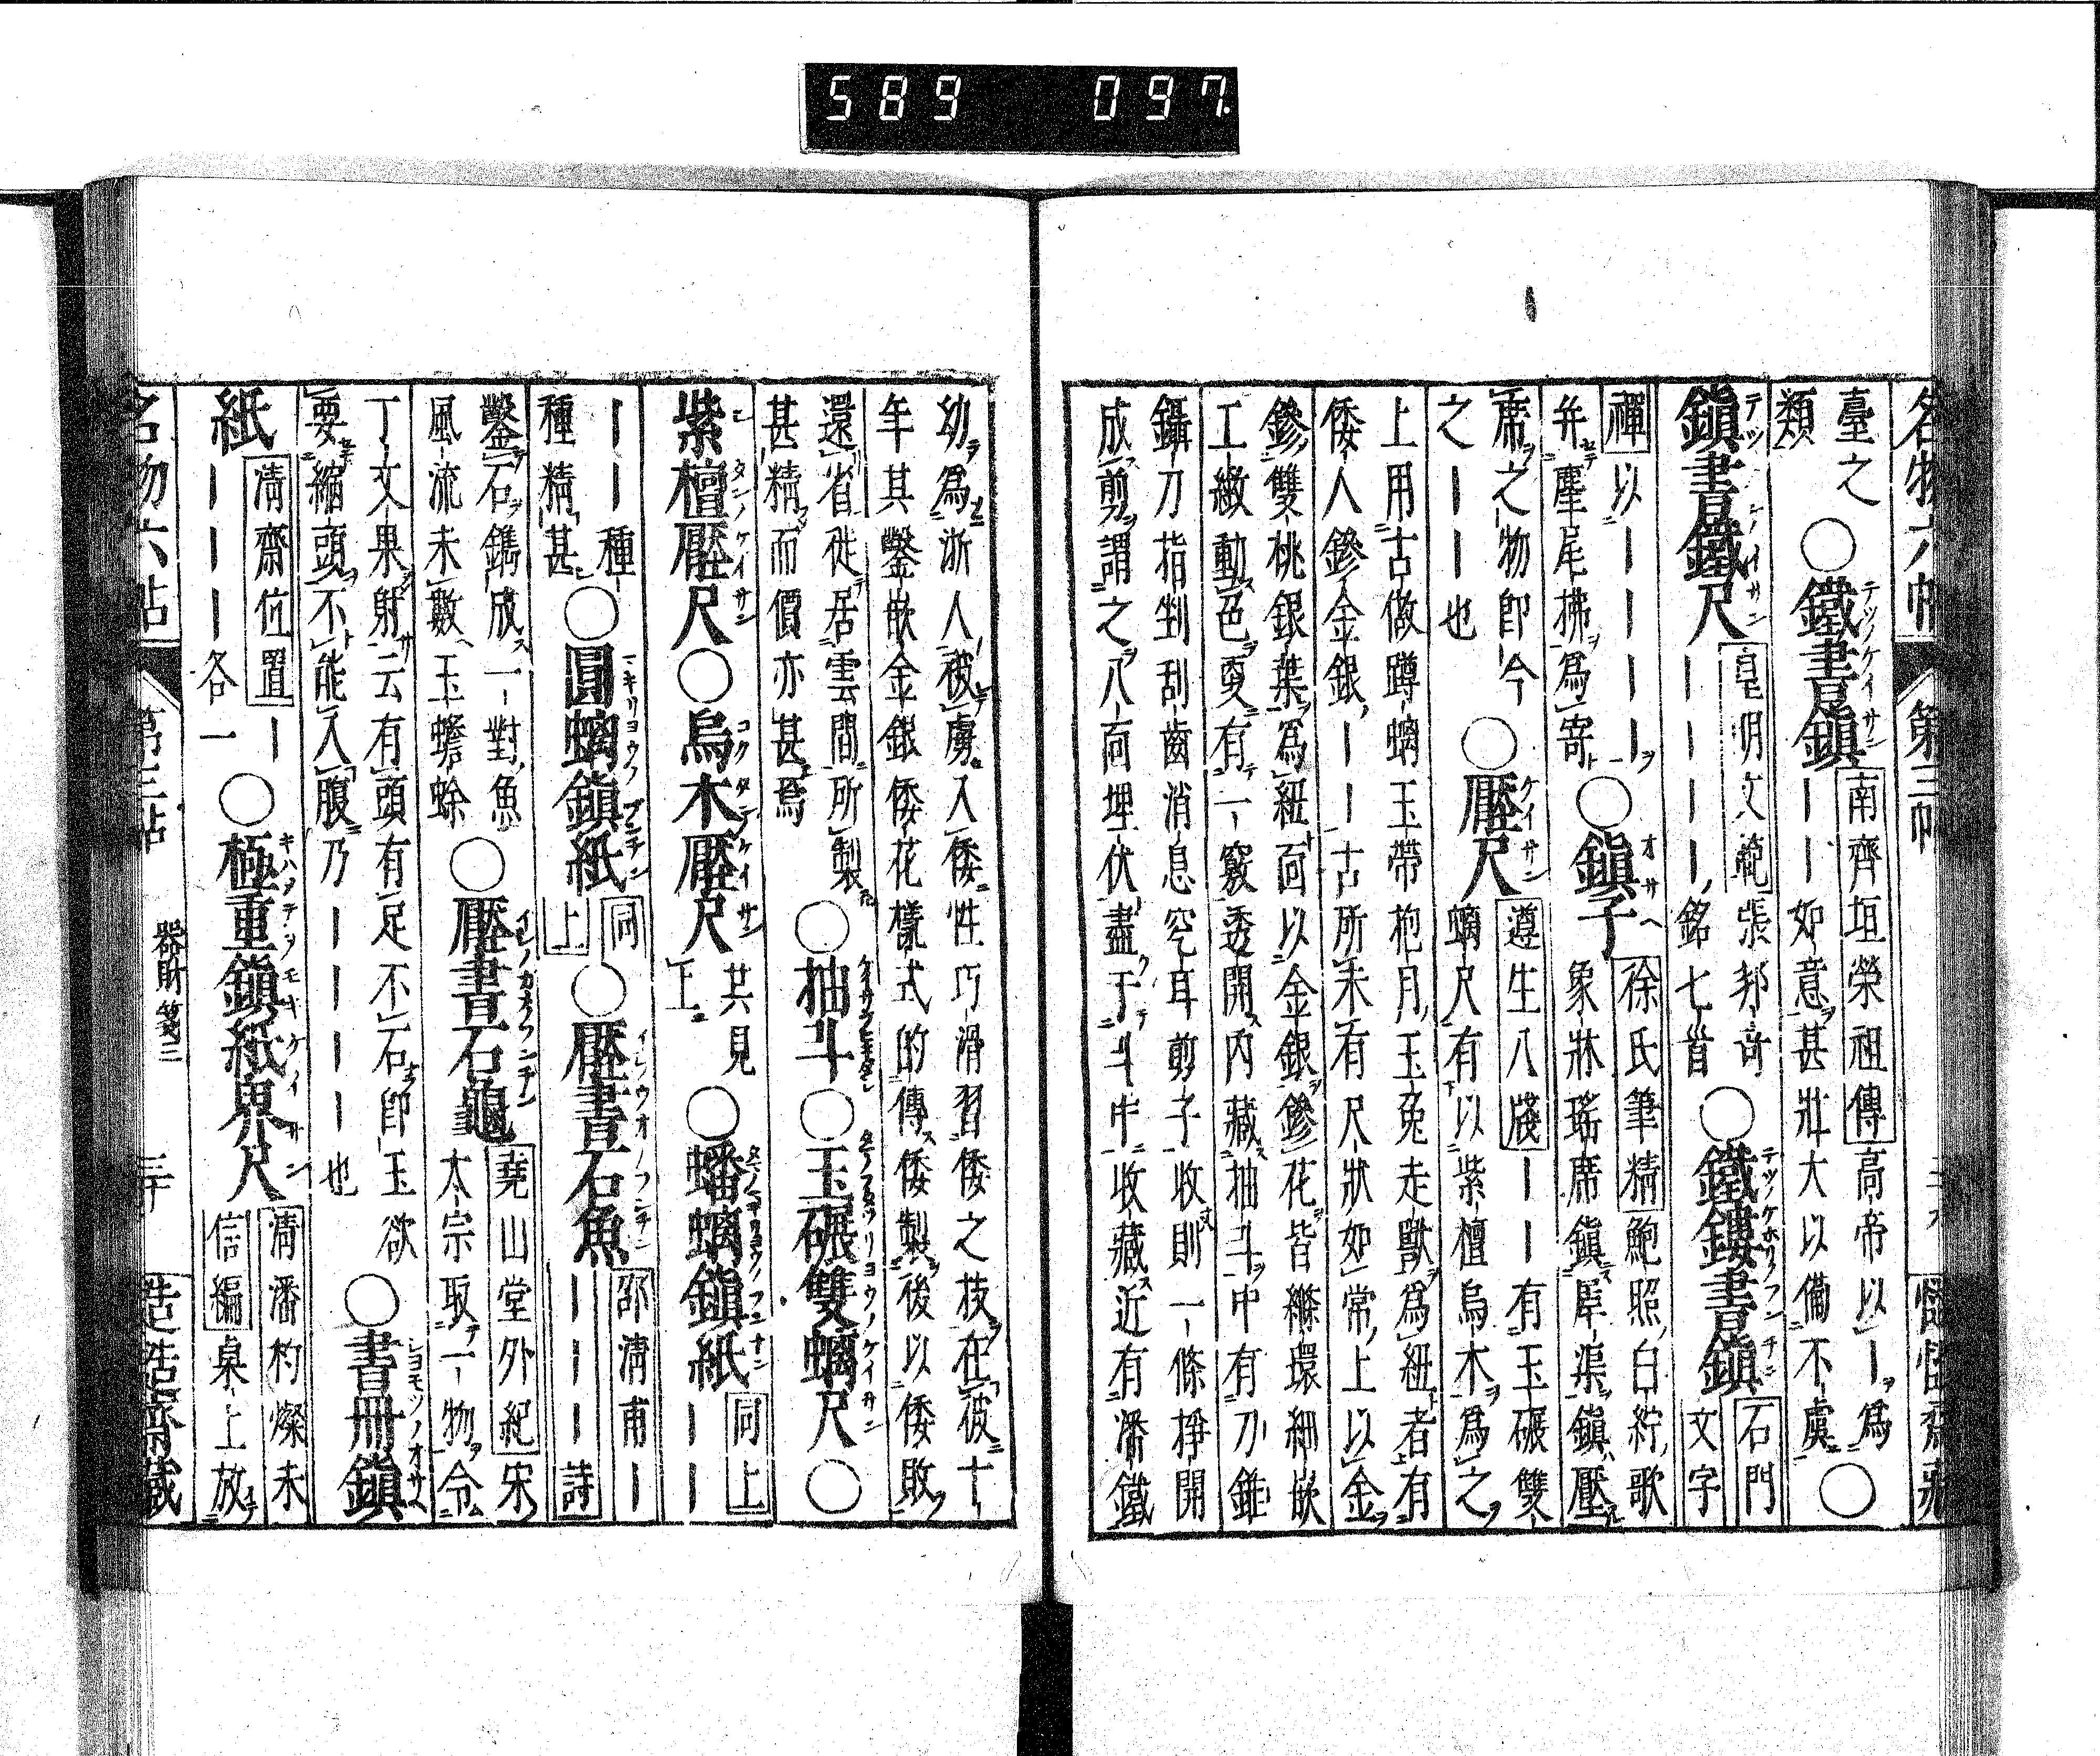 589 097
名物六帖 第三帖 二十九
臺之
類
○鐵書鎮
南齊垣榮祖傳高帝以丨爲
丨丨如意甚壯大以備不虞
○
鎮書鐵尺
皇明文範張邦奇
丨丨丨丨銘七首
○鐵鏤書鎮
石門
文字
禪以丨丨丨丨
弁麈尾拂爲寄
○鎮子
徐氏筆精鮑照白紵歌
象牀瑤席鎮犀渠鎮壓
席之物即今
之丨丨也
○壓尺
遵生八牋丨丨有玉碾雙
螭尺有以紫檀烏木爲之
上用古做蹲螭玉帶枹月玉兔走獸爲紐者有
倭人鏒金銀丨丨古所未有尺狀如常上以金
鏒雙桃銀葉爲紐面以金銀鏒花皆縧環細嵌
工緻動色更有一竅透開内藏抽斗中有刀錐
鑷刀指剉刮齒消息穵耳剪子收則一條掙開
成剪謂之八面埋伏盡于斗中收藏近有潘鐵
幼爲浙人被虜入倭性巧滑習倭之技在彼十
年其鑿嵌金銀倭花樣式的傳倭製後以倭敗
還省徙居雲間所製
甚精而價亦甚焉
○抽斗○玉碾雙螭尺○
紫檀壓尺○烏木壓尺
共見
上
○蟠螭鎮紙
同上
丨丨
丨丨種
種精甚
○圓螭鎮紙
同
上
○壓書石魚
邵清甫丨
丨丨丨詩
鑿石鐫成一對魚
風流未數玉蟾蜍
○壓書石龜
堯山堂外紀宋
太宗取一物令
丁文果射云有頭有足不石即玉欲
要縮頭不能入腹乃丨丨丨丨也
○書冊鎮
紙
清齋位置丨
丨丨丨各一
○極重鎮紙界尺
清潘杓燦未
信編桌上放
名物六帖 第三帖 器財箋三 三十